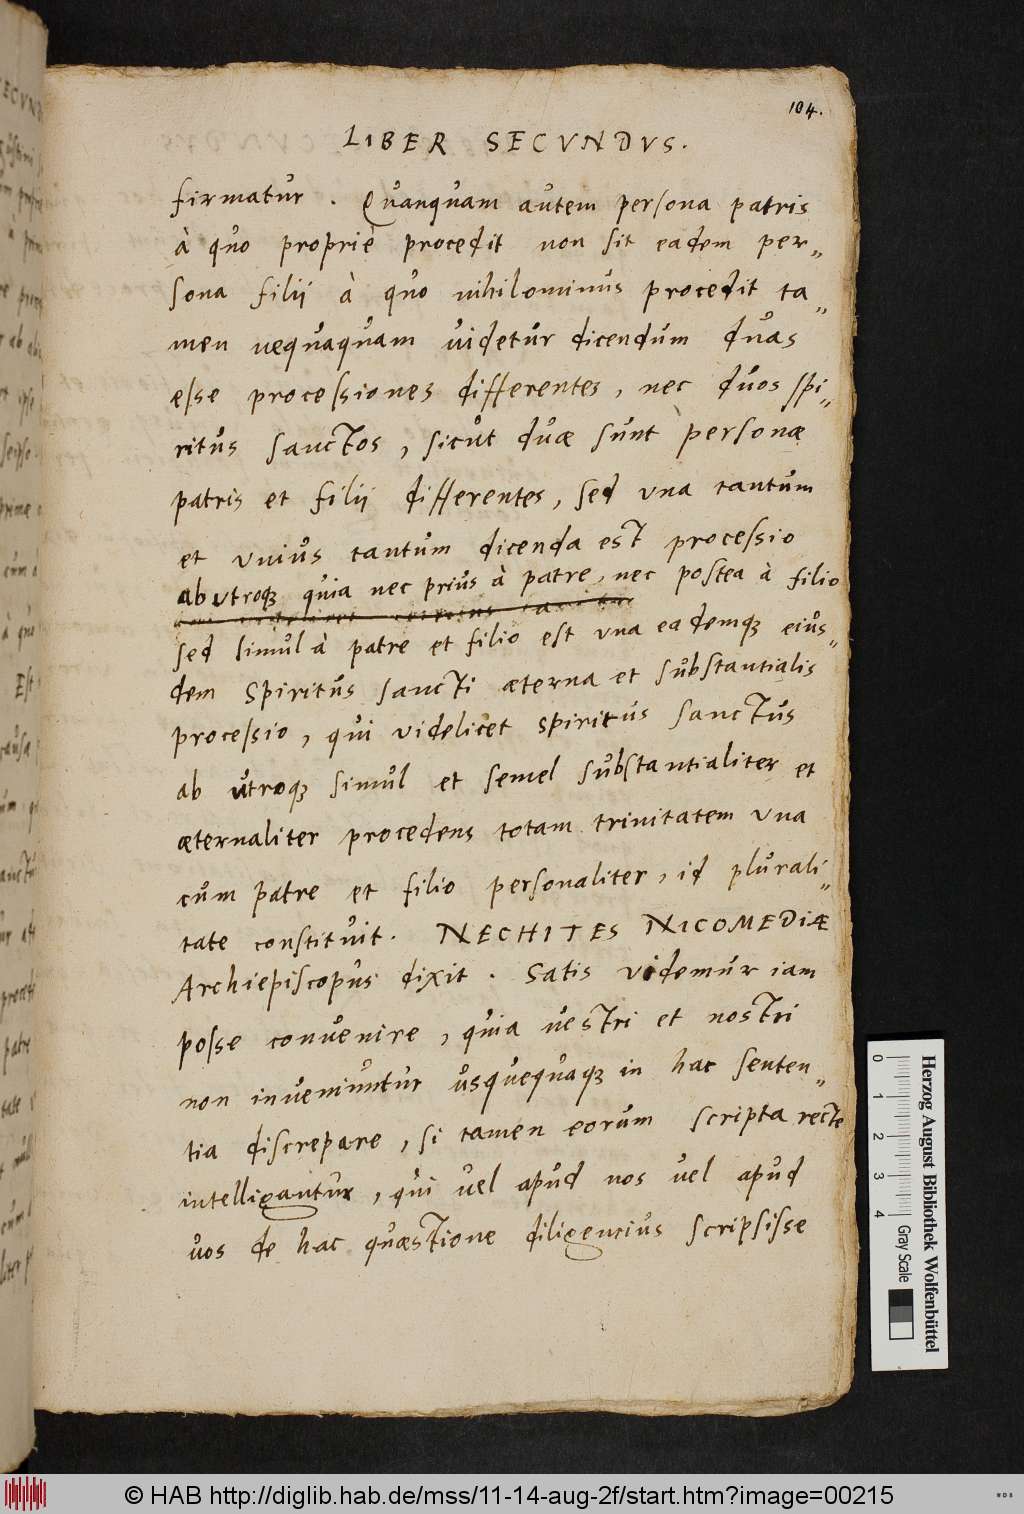 104.
LIBER SECVNDVS.
firmatur . Quanquam autem persona patris
à quo propriè procedit non sit eadem per„
sona filij à quo nihilominus procedit ta„
men nequaquam videtur dicendum duas
esse processiones differentes, nec duos spi„
ritus sanctos, sicut duæ sunt personæ
patris et filij differentes, sed una tantum
et unius tantum dicenda est processio
ab utroq; quia nec prius à patre, nec postea à filio
sed simul à patre et filio est una eademq; eius„
dem Spiritus sancti æterna et substantialis
processio, qui videlicet spiritus sanctus
ab utroq; simul et semel substantialiter et
æternaliter procedens totam trinitatem una
cum patre et filio personaliter, id plurali„
tate constituit. NECHITES NICOMEDIÆ
Archiepiscopus dixit . Satis videmur iam
posse convenire, quia vestri et nostri
non inveniuntur usquequaq; in hac senten„
tia discrepare, si tamen eorum scripta recte
intelligantur, qui vel apud nos vel apud
vos de hac quæstione diligencius scripsisse
Herzog August Bibliothek Wolfenbüttel
0 1 2 3 4
Gray Scale
© HAB http://diglib.hab.de/mss/11-14-aug-2f/start.htm?image=00215